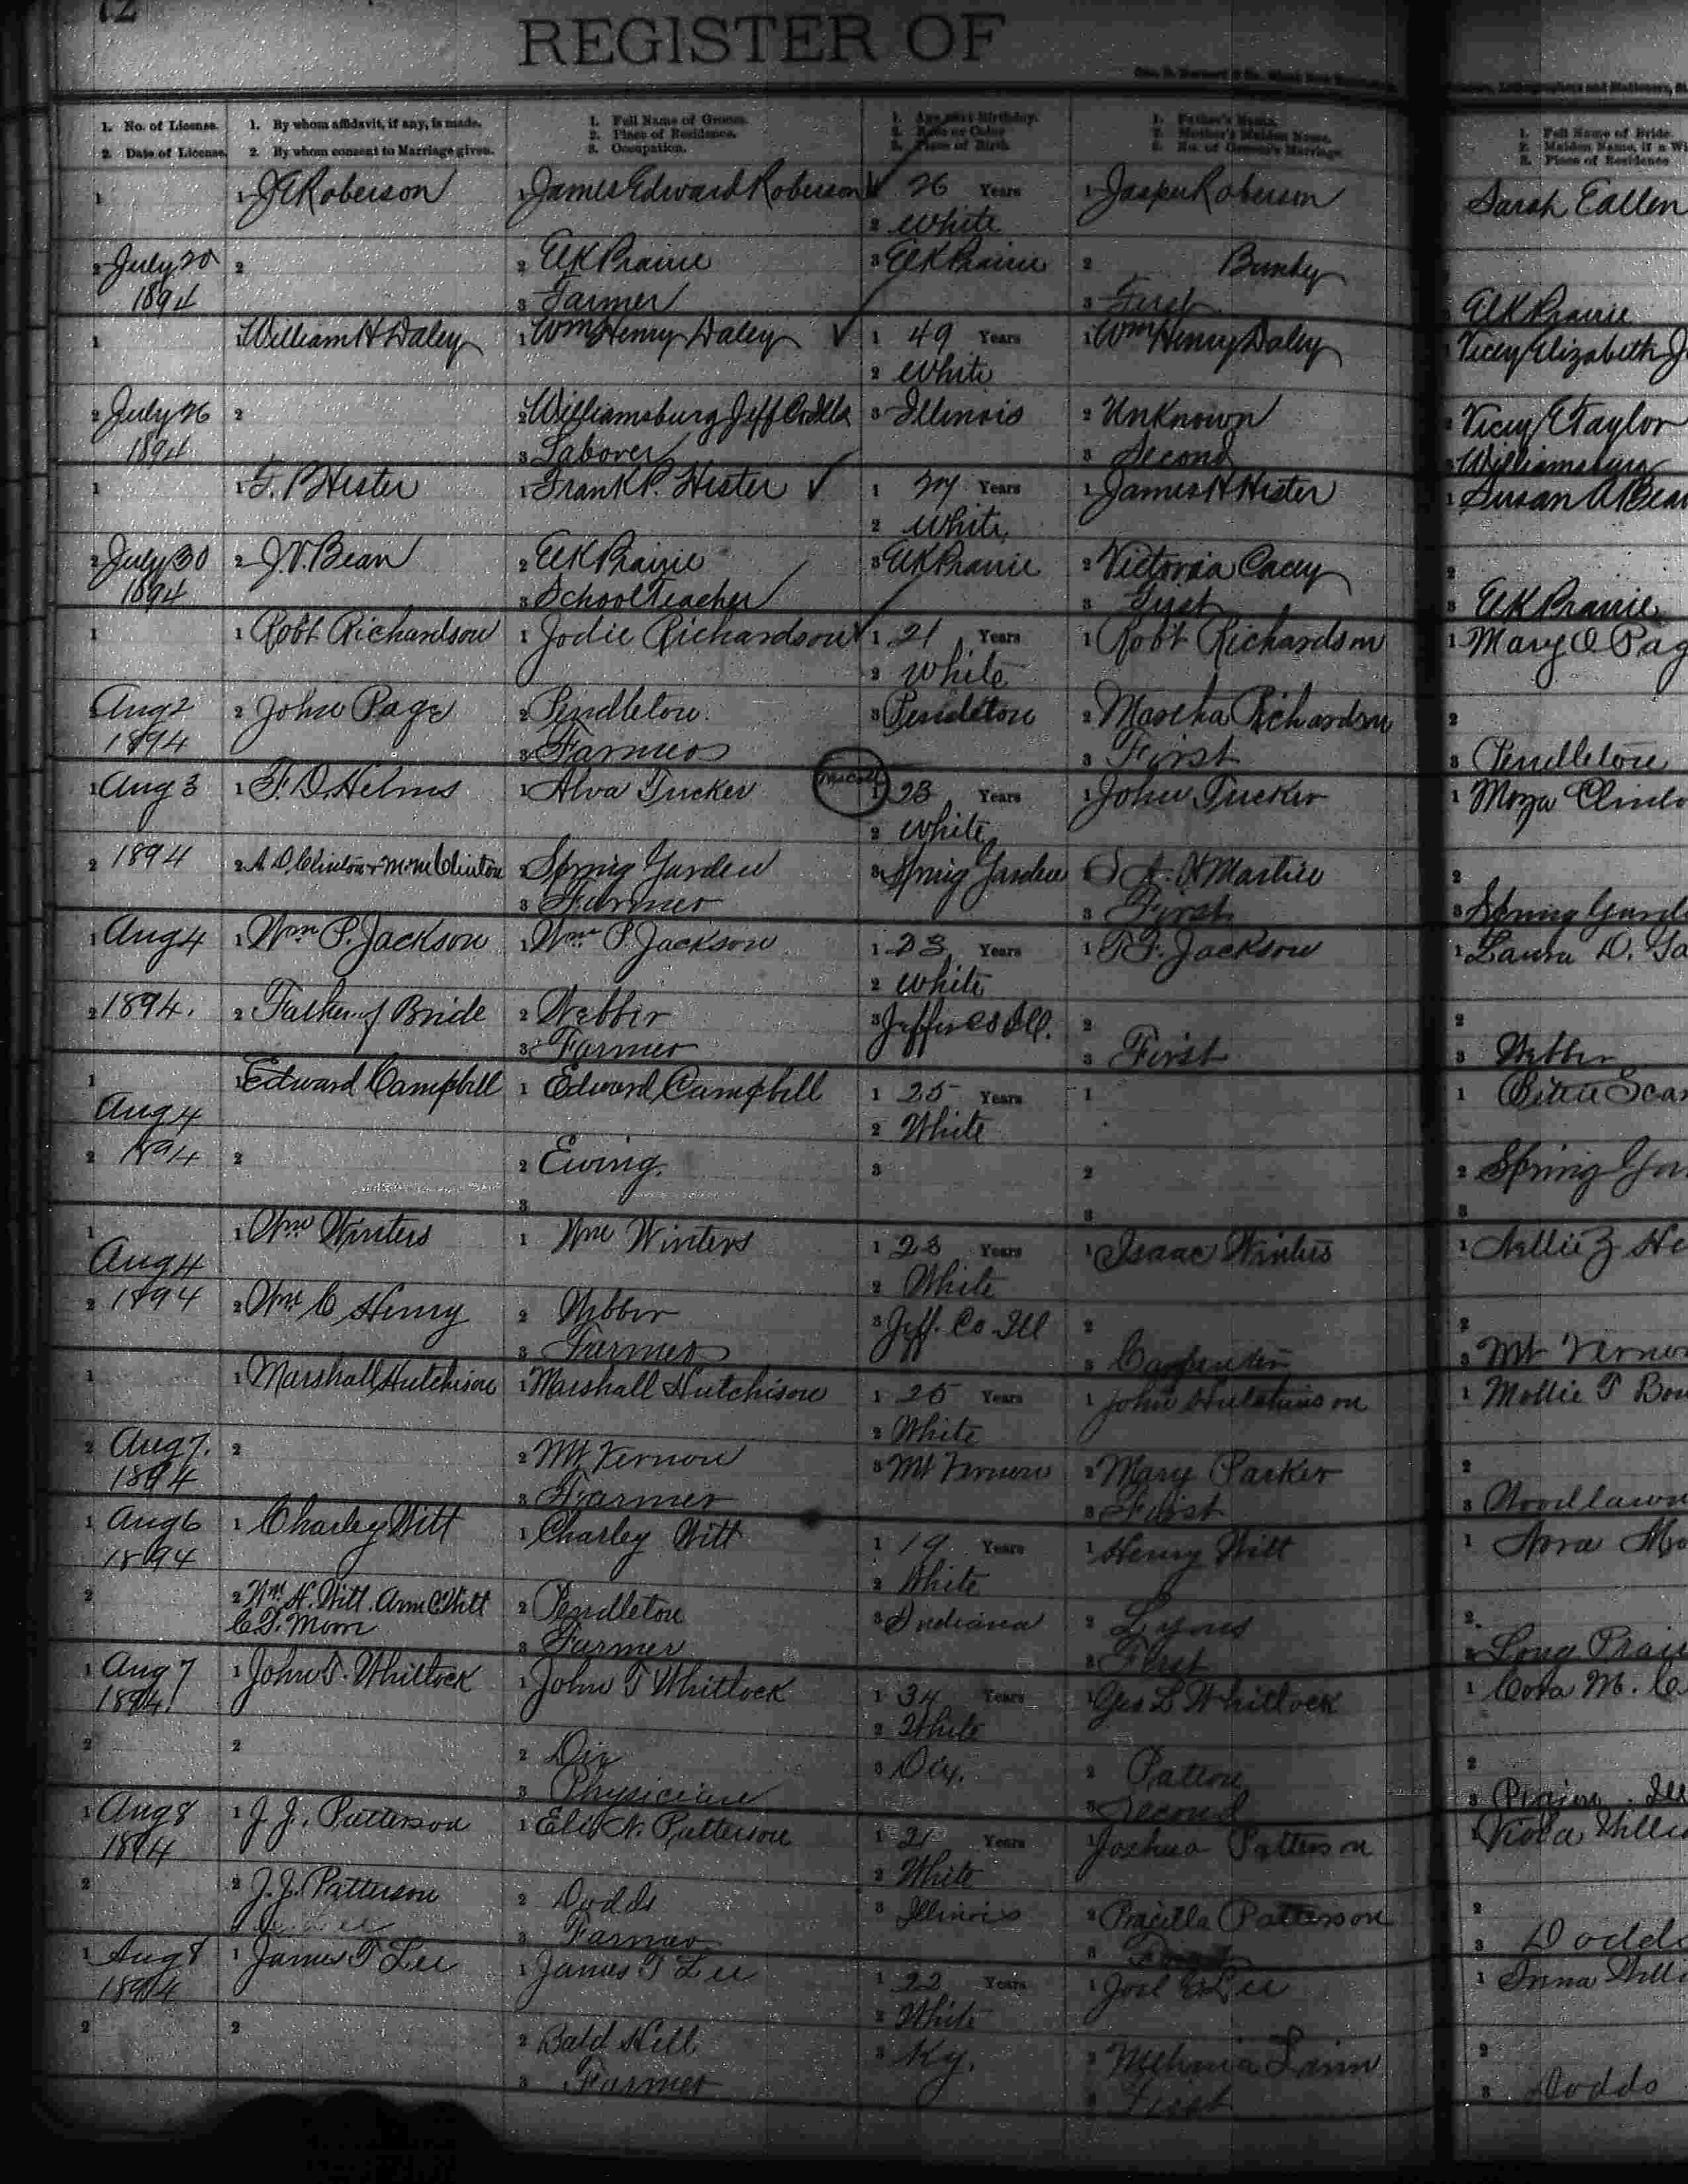 72
REGISTER OF
1. No. of License.
2. Date of License.
1. By whom affidavit, if any, is made.
2. By whom consent to Marriage given.
1. Full Name of Groom.
2. Place of Residence.
3. Occupation.
1. Age next Birthday.
2. Race or Color
3. Place of Birth
1. Father's Name.
2. Mother's Maiden Name.
3. No. of Groom's Marriage
1. Full Name of Bride.
2. Maiden Name, if a Wi
3. Place of Residence
1 1 J E Roberson 1 James Edward Roberson 1 26 Years 1 Jasper Roberson Sarah E Allen
2 White
2 July 20 2 2 Elk Prairie 3 Elk Prairie 2 Bundy
1894 3 Farmer 3 First Elk Prairie
1 1 William H Daley 1 Wm Henry Daley 1 49 Years 1 Wm Henry Daley Vicey Elizabeth J
2 White
2 July 26 2 2 Williamsburg Jeff Co Ills 3 Illinois 2 Unknown Vicey E Taylor
1894 3 Laborer 3 Second 3 Williamsburg
1 1 F. P Hester 1 Frank P. Hester 1 Years 1 James H Hester 1 Susan A Bean
2 White
2 July 30 2 J. V. Bean 2 Elk Prairie 3 Elk Prairie 2 Victoria Cacey 2
1894 3 School Teacher 3 First 3 Elk Prairie
1 1 Robt Richardson 1 Jodie Richardson 1 21 Years 1 Robt Richardson 1 Mary O Pag
2 White
Aug 2 2 John Page 2 Pendleton. 3 Pendleton 2 Martha Richardson 2
1894 3 Farmer 3 First 3 Pendleton
1 Aug 3 1 F. D. Helms 1 Alva Tucker 1 23 Years 1 John Tucker 1 Moza Clinto
2 White
2 1894 2 A. D. Clinton & M. M. Clinton 2 Spring Garden 3 Spring Garden S A. H Martin 2
3 Farmer 3 First 3 Spring Garde
1 Aug 4 1 Wm P. Jackson 1 Wm P. Jackson 1 23 Years 1 T. F. Jackson 1 Laura D. Ga
2 White
2 1894. 2 Father of Bride 2 Webber 3 Jeffers Co Ill. 2 2
3 Farmer 3 First 3 Webber
1 1 Edward Campbell 1 Edward Campbell 1 25 Years 1 1
Aug 4 2 White
2 1894 2 2 Ewing. 3 2 2 Spring Gar
3 3 3
1 1 Wm Winters 1 Wm Winters 1 23 Years 1 Isaac Winters 1 Nellie Z He
Aug 4 2 White
2 1894 2 Wm C Henry 2 Webber 3 Jeff. Co Ill 2 2
3 Farmer 3 Carpenter 3 Mt Vernon
1 1 Marshall Hutchison 1 Marshall Hutchison 1 25 Years 1 John Hutchinson 1 Mollie T Bow
2 White
2 Aug 7. 2 2 Mt Vernon 3 Mt Vernon 2 Mary Parker 2
1894 3 Farmer 3 First 3 Woodlawn
1 Aug 6 1 Charley Witt 1 Charley Witt 1 19 Years 1 Henry Witt 1 Nora
1894 2 White
2 2 Wm. H. Witt. Ann C Witt 2 Pendleton 3 Indiana 2 Lyons 2
3 Farmer 3 First 3 Long Prair
1 Aug 7 1 John T. Whitlock 1 John T Whitlock 1 34 Years 1 Geo L Whitlock 1 Cora M. C
1894. 2 White
2 2 2 Dix 3 Dix. 2 Patton 2
3 Physician 3 Second 3
1 Aug 8 1 J. J. Patterson 1 Eli N. Patterson 1 21 Years 1 Joshua Patterson 1 Viola Willi
1894 2 White
2 2 J. J. Patterson 2 Dodds 3 Illinois 2 Pracilla Patterson 2
3 Farmer 3 3 Dodds
1 Aug 8 1 James T Lee 1 James T Lee 1 22 Years 1 Joel E Lee 1
1894 2 White
2 2 2 Bald Hill 3 Ky. 2 2
3 Farmer 3 First 3 Dodds